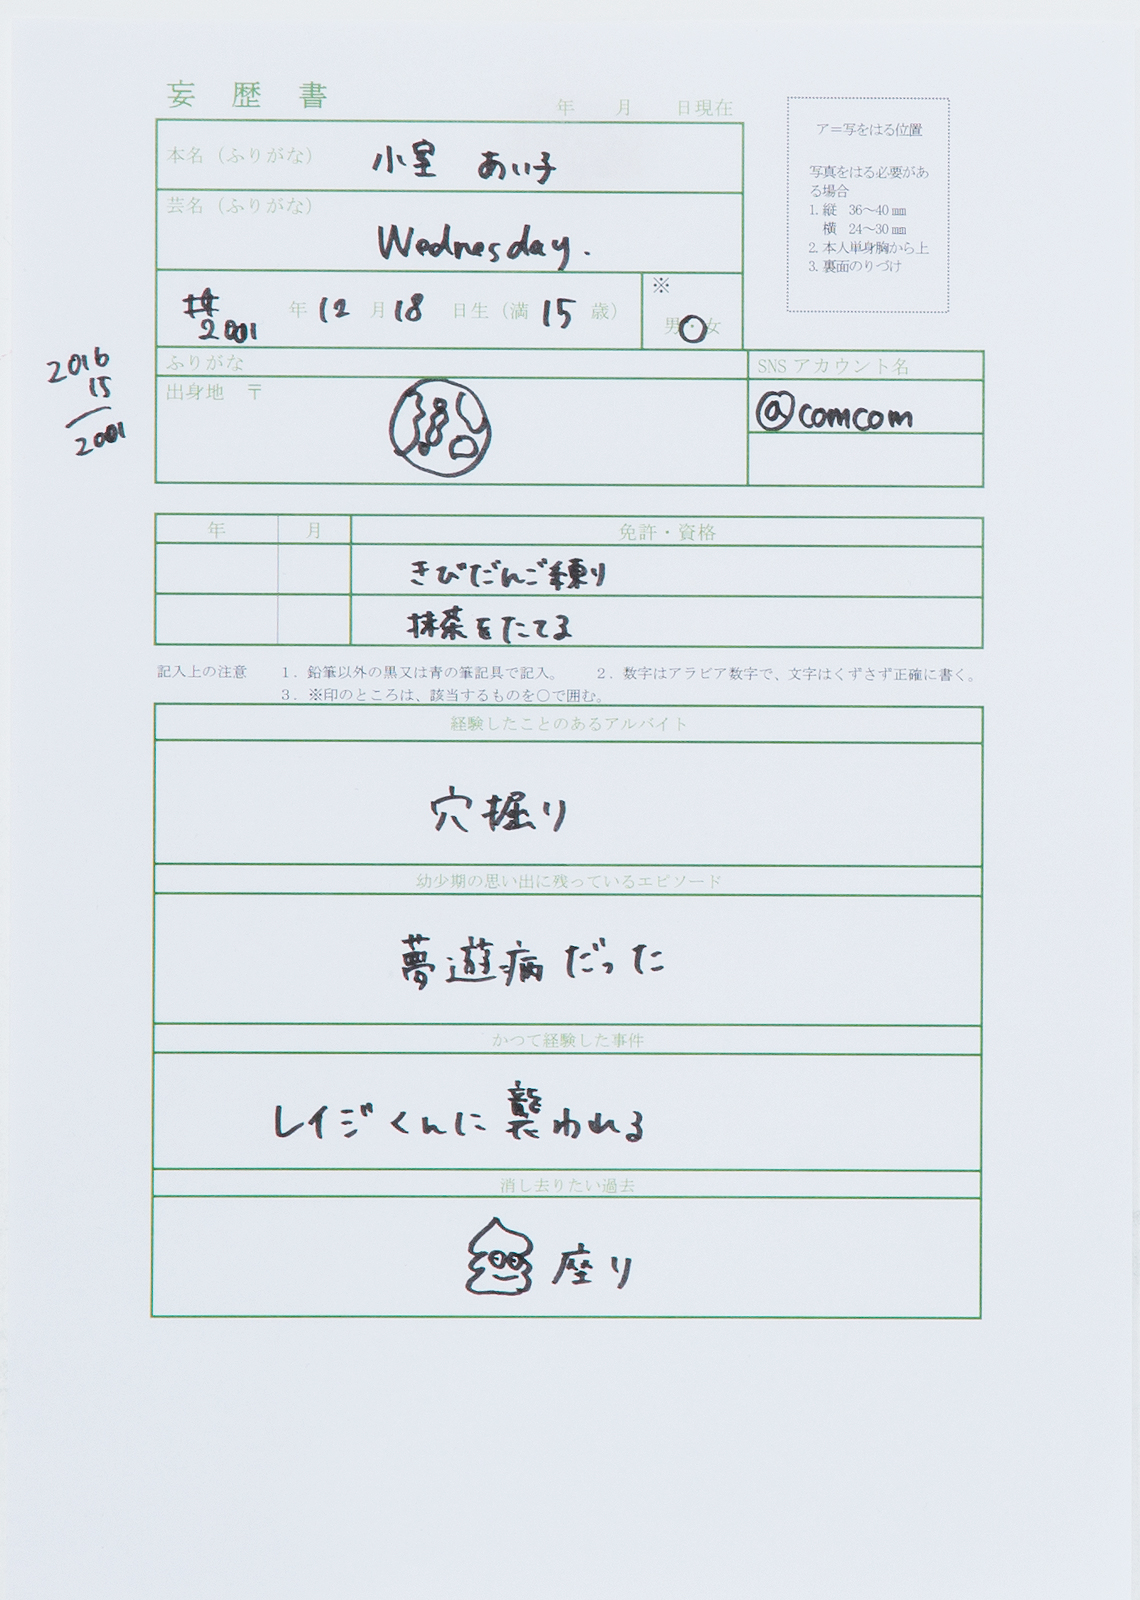 妄 歴 書
年 月 日現在
ア＝写をはる位置
写真をはる必要があ
る場合
1. 縦 36～40㎜
横 24～30㎜
2. 本人単身胸から上
3. 裏面のりづけ
本名（ふりがな） 小室 あい子
芸名（ふりがな）
Wednesday.
年 12 月 18 日生（満 15 歳）
2001
※
男・女
2016
15
2001
ふりがな
出身地 〒
SNS アカウント名
@comcom
年 月 免許・資格
きびだんご練り
抹茶をたてる
記入上の注意 1．鉛筆以外の黒又は青の筆記具で記入。 2．数字はアラビア数字で、文字はくずさず正確に書く。
3．※印のところは、該当するものを○で囲む。
経験したことのあるアルバイト
穴掘り
幼少期の思い出に残っているエピソード
夢遊病だった
かつて経験した事件
レイジくんに襲われる
消し去りたい過去
座り